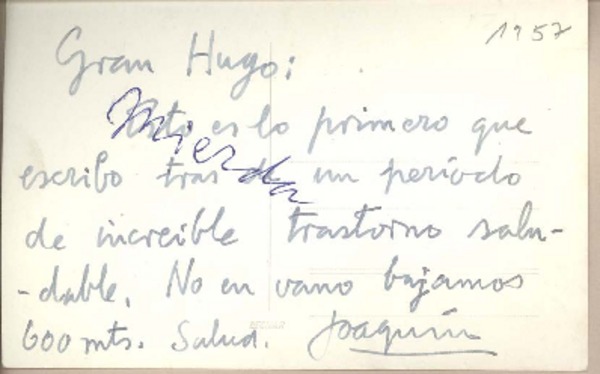 1957
Gran Hugo:
Esto es lo primero que
escribo tras de un período
de increíble trastorno salu-
-dable. No en vano bajamos
600 mts. Salud. Joaquín
Mierda